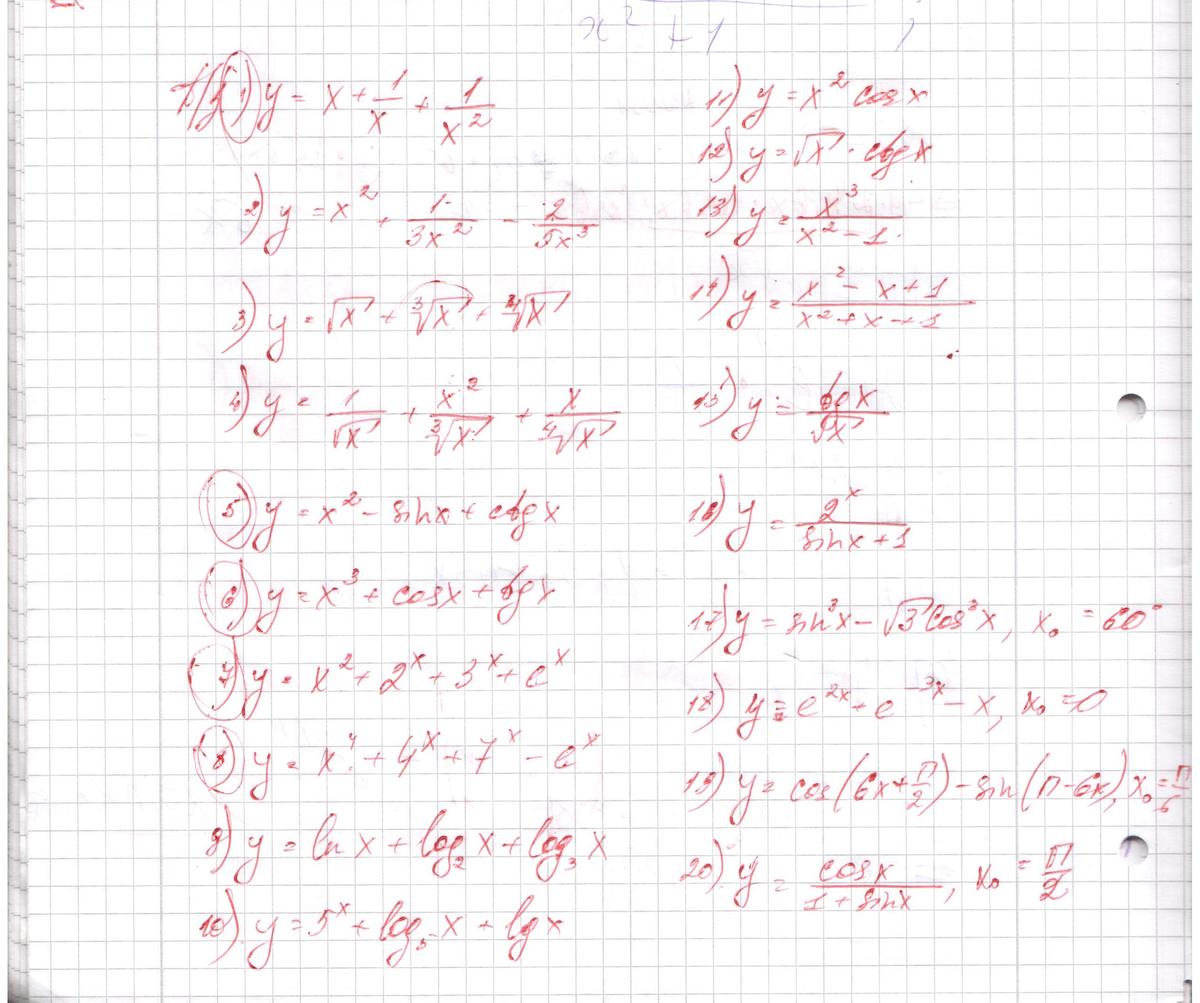 x² + 1
Д/з 1) y = x + 1/x + 1/x²
2) y = x² + 1/(3x²) - 2/(5x³)
3) y = √x + ∛x + ∜x
4) y = 1/√x + x²/∛x + x/∜x
5) y = x² - sinx + ctgx
6) y = x³ + cosx + tgx
7) y = x² + 2ˣ + 3ˣ + eˣ
8) y = x⁴ + 4ˣ + 7ˣ - eˣ
9) y = ln x + log₂ x + log₃ x
10) y = 5ˣ + log₅ x + lg x
11) y = x² cosx
12) y = √x · ctgx
13) y = x³/(x² - 1)
14) y = (x² - x + 1)/(x² + x + 1)
15) y = tgx/√x
16) y = 2ˣ/(sinx + 1)
17) y = sin³x - √3 cos³x, x₀ = 60°
18) y = e²ˣ + e⁻³ˣ - x, x₀ = 0
19) y = cos(6x + π/2) - sin(π - 6x), x₀ = π/6
20) y = cosx/(1 + sinx), x₀ = π/2